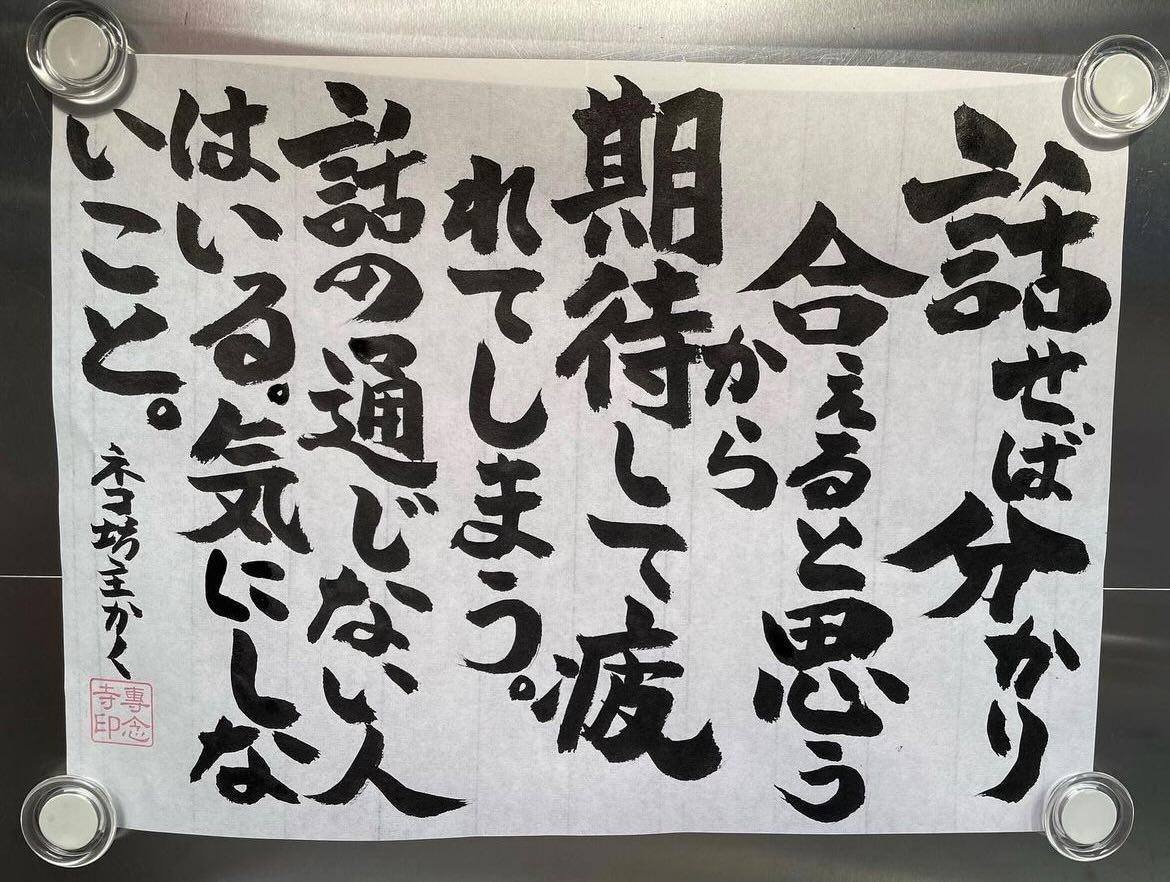 話せば分かり
合えると思う
から
期待して疲
れてしまう。
話の通じない人
はいる。気にしな
いこと。
ネコ坊主かく
專念
寺印